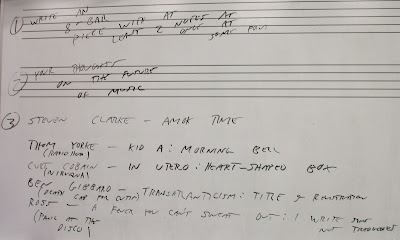 ① WRITE AN
8-BAR
PIECE WITH AT NOTES AT
LEAST 2 ONCE AT
SOME POINT
② YOUR THOUGHTS
ON THE FUTURE
OF MUSIC
③ STEVEN CLARKE - AMOK TIME
THOM YORKE - KID A: MORNING BELL
(RADIOHEAD)
CURT COBAIN - IN UTERO: HEART-SHAPED BOX
(NIRVANA)
BEN GIBBARD - TRANSATLANTICISM: TITLE & REGISTRATION
(DEATH CAB FOR CUTIE)
ROSS - A FEVER YOU CAN'T SWEAT OUT: I WRITE SINS
(PANIC AT THE NOT TRAGEDIES
DISCO)